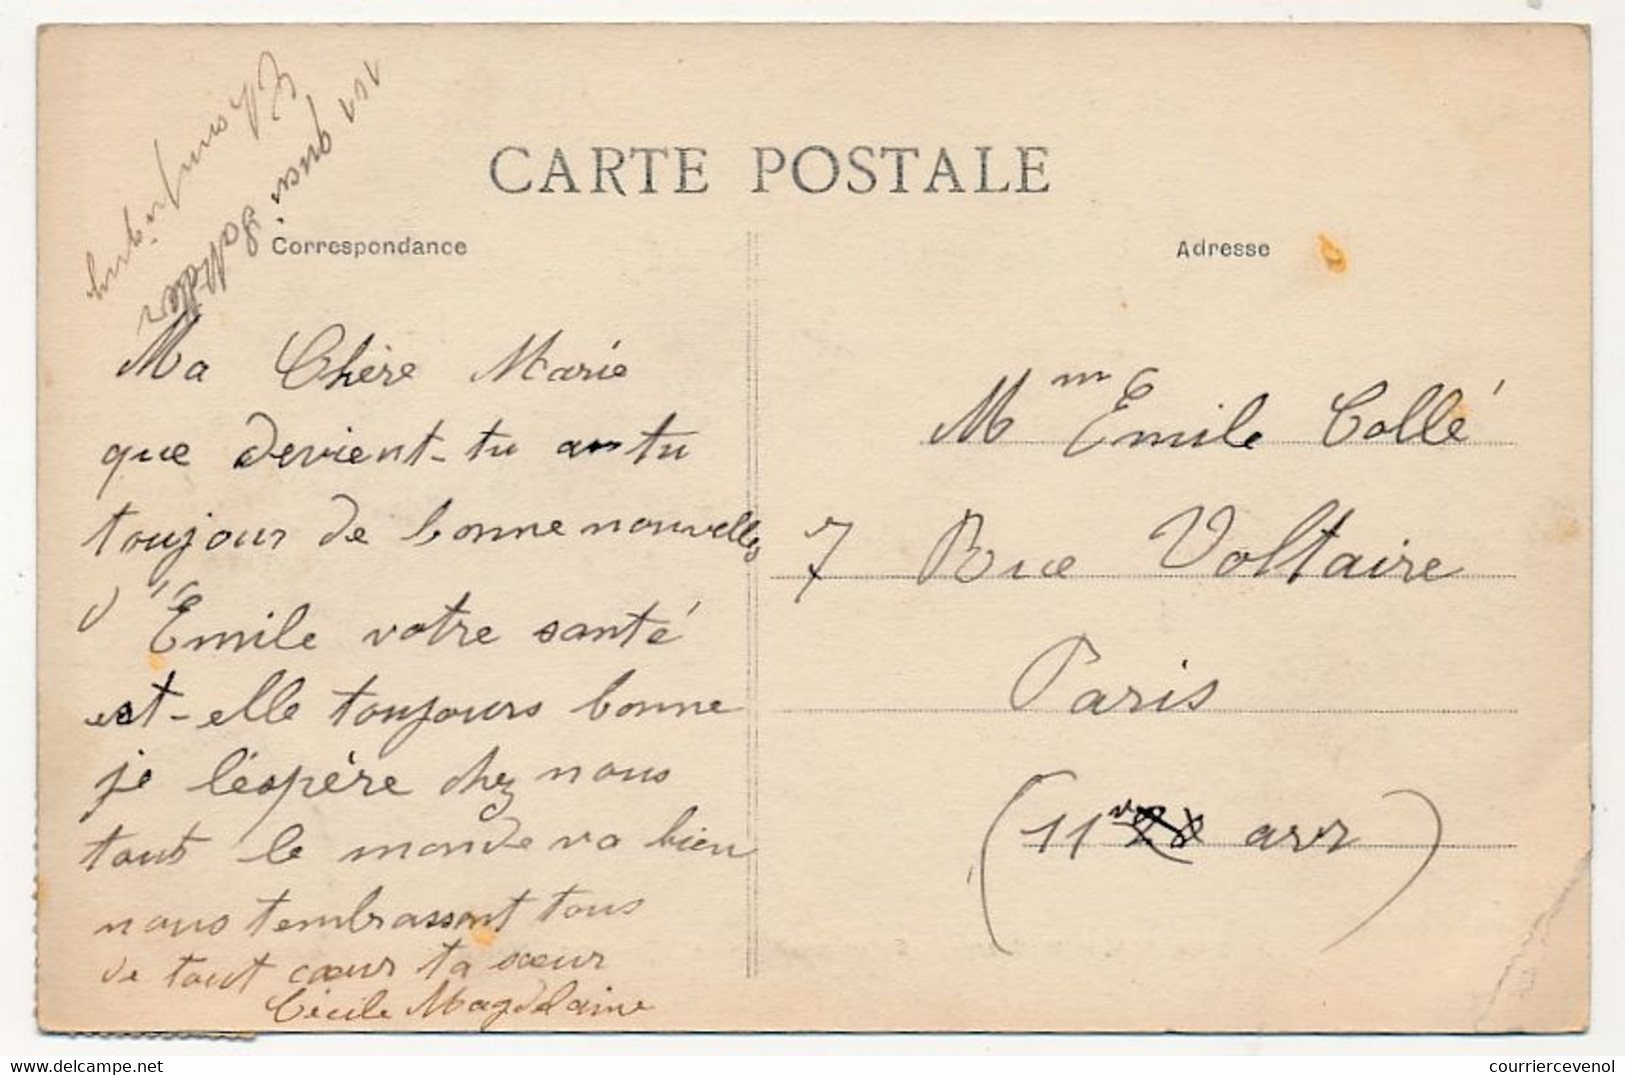 CARTE POSTALE
Correspondance
Adresse
Ma Chère Marie
que devient-tu as tu
toujour de bonne nouvelles
d'Émile votre santé
est-elle toujours bonne
je l'éspère chez nous
tout le monde va bien
nous tembrassont tous
de tout cœur ta sœur
Cécile Magdelaine
Mm Emile Collé
7 Rue Voltaire
Paris
(11 arr)
courriercevenol